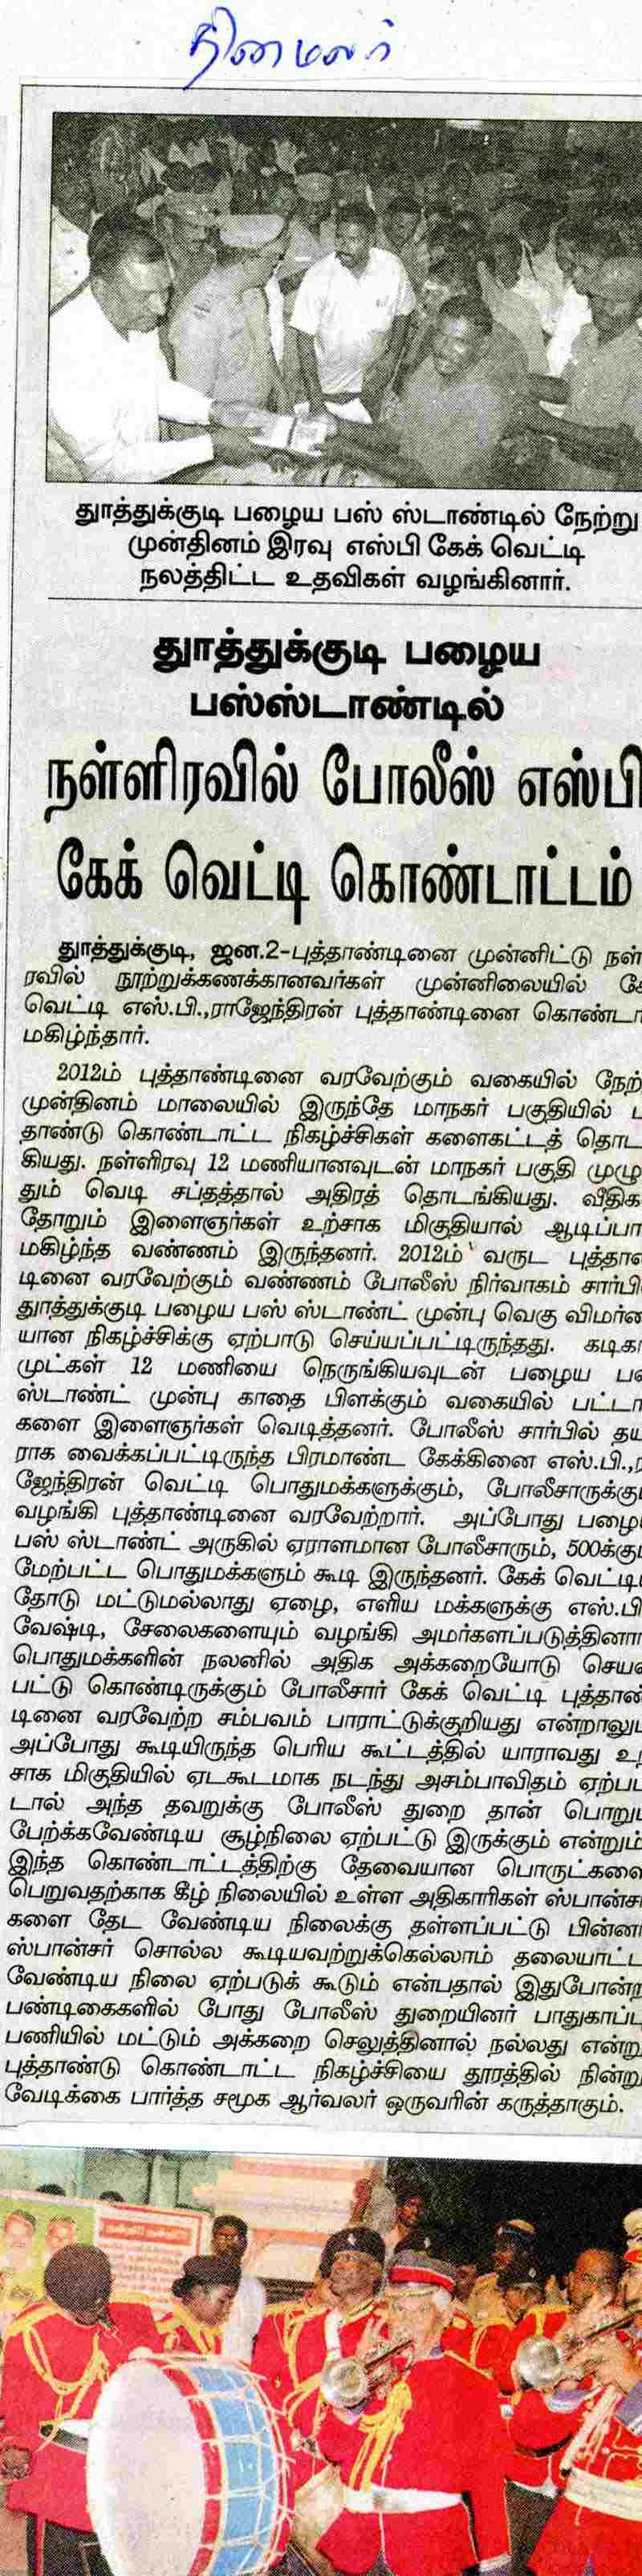 தினமலர்
தூத்துக்குடி பழைய பஸ் ஸ்டாண்டில் நேற்று
முன்தினம் இரவு எஸ்பி கேக் வெட்டி
நலத்திட்ட உதவிகள் வழங்கினார்.
தூத்துக்குடி பழைய
பஸ்ஸ்டாண்டில்
நள்ளிரவில் போலீஸ் எஸ்பி
கேக் வெட்டி கொண்டாட்டம்
தூத்துக்குடி, ஜன.2-புத்தாண்டினை முன்னிட்டு நள்
ரவில் நூற்றுக்கணக்கானவர்கள் முன்னிலையில் கே
வெட்டி எஸ்.பி.,ராஜேந்திரன் புத்தாண்டினை கொண்டா
மகிழ்ந்தார்.
2012ம் புத்தாண்டினை வரவேற்கும் வகையில் நேற்
முன்தினம் மாலையில் இருந்தே மாநகர் பகுதியில் பு
தாண்டு கொண்டாட்ட நிகழ்ச்சிகள் களைகட்டத் தொட
கியது. நள்ளிரவு 12 மணியானவுடன் மாநகர் பகுதி முழு
தும் வெடி சப்தத்தால் அதிரத் தொடங்கியது. வீதிக
தோறும் இளைஞர்கள் உற்சாக மிகுதியால் ஆடிப்பா
மகிழ்ந்த வண்ணம் இருந்தனர். 2012ம் வருட புத்தா
டினை வரவேற்கும் வண்ணம் போலீஸ் நிர்வாகம் சார்பி
தூத்துக்குடி பழைய பஸ் ஸ்டாண்ட் முன்பு வெகு விமர்சை
யான நிகழ்ச்சிக்கு ஏற்பாடு செய்யப்பட்டிருந்தது. கடிகா
முட்கள் 12 மணியை நெருங்கியவுடன் பழைய பஸ்
ஸ்டாண்ட் முன்பு காதை பிளக்கும் வகையில் பட்டா
களை இளைஞர்கள் வெடித்தனர். போலீஸ் சார்பில் தய
ராக வைக்கப்பட்டிருந்த பிரமாண்ட கேக்கினை எஸ்.பி.,ர
ஜேந்திரன் வெட்டி பொதுமக்களுக்கும், போலீசாருக்கும்
வழங்கி புத்தாண்டினை வரவேற்றார். அப்போது பழைய
பஸ் ஸ்டாண்ட் அருகில் ஏராளமான போலீசாரும், 500க்கும்
மேற்பட்ட பொதுமக்களும் கூடி இருந்தனர். கேக் வெட்டிய
தோடு மட்டுமல்லாது ஏழை, எளிய மக்களுக்கு எஸ்.பி
வேஷ்டி, சேலைகளையும் வழங்கி அமர்களப்படுத்தினார்
பொதுமக்களின் நலனில் அதிக அக்கறையோடு செயல்
பட்டு கொண்டிருக்கும் போலீசார் கேக் வெட்டி புத்தாண்
டினை வரவேற்ற சம்பவம் பாராட்டுக்குறியது என்றாலும்
அப்போது கூடியிருந்த பெரிய கூட்டத்தில் யாராவது உற்
சாக மிகுதியில் ஏடகூடமாக நடந்து அசம்பாவிதம் ஏற்பட்
டால் அந்த தவறுக்கு போலீஸ் துறை தான் பொறுப்
பேற்க்கவேண்டிய சூழ்நிலை ஏற்பட்டு இருக்கும் என்றும்
இந்த கொண்டாட்டத்திற்கு தேவையான பொருட்களை
பெறுவதற்காக கீழ் நிலையில் உள்ள அதிகாரிகள் ஸ்பான்சர்
களை தேட வேண்டிய நிலைக்கு தள்ளப்பட்டு பின்னர்
ஸ்பான்சர் சொல்ல கூடியவற்றுக்கெல்லாம் தலையாட்ட
வேண்டிய நிலை ஏற்படுக் கூடும் என்பதால் இதுபோன்ற
பண்டிகைகளில் போது போலீஸ் துறையினர் பாதுகாப்பு
பணியில் மட்டும் அக்கறை செலுத்தினால் நல்லது என்று
புத்தாண்டு கொண்டாட்ட நிகழ்ச்சியை தூரத்தில் நின்று
வேடிக்கை பார்த்த சமூக ஆர்வலர் ஒருவரின் கருத்தாகும்.